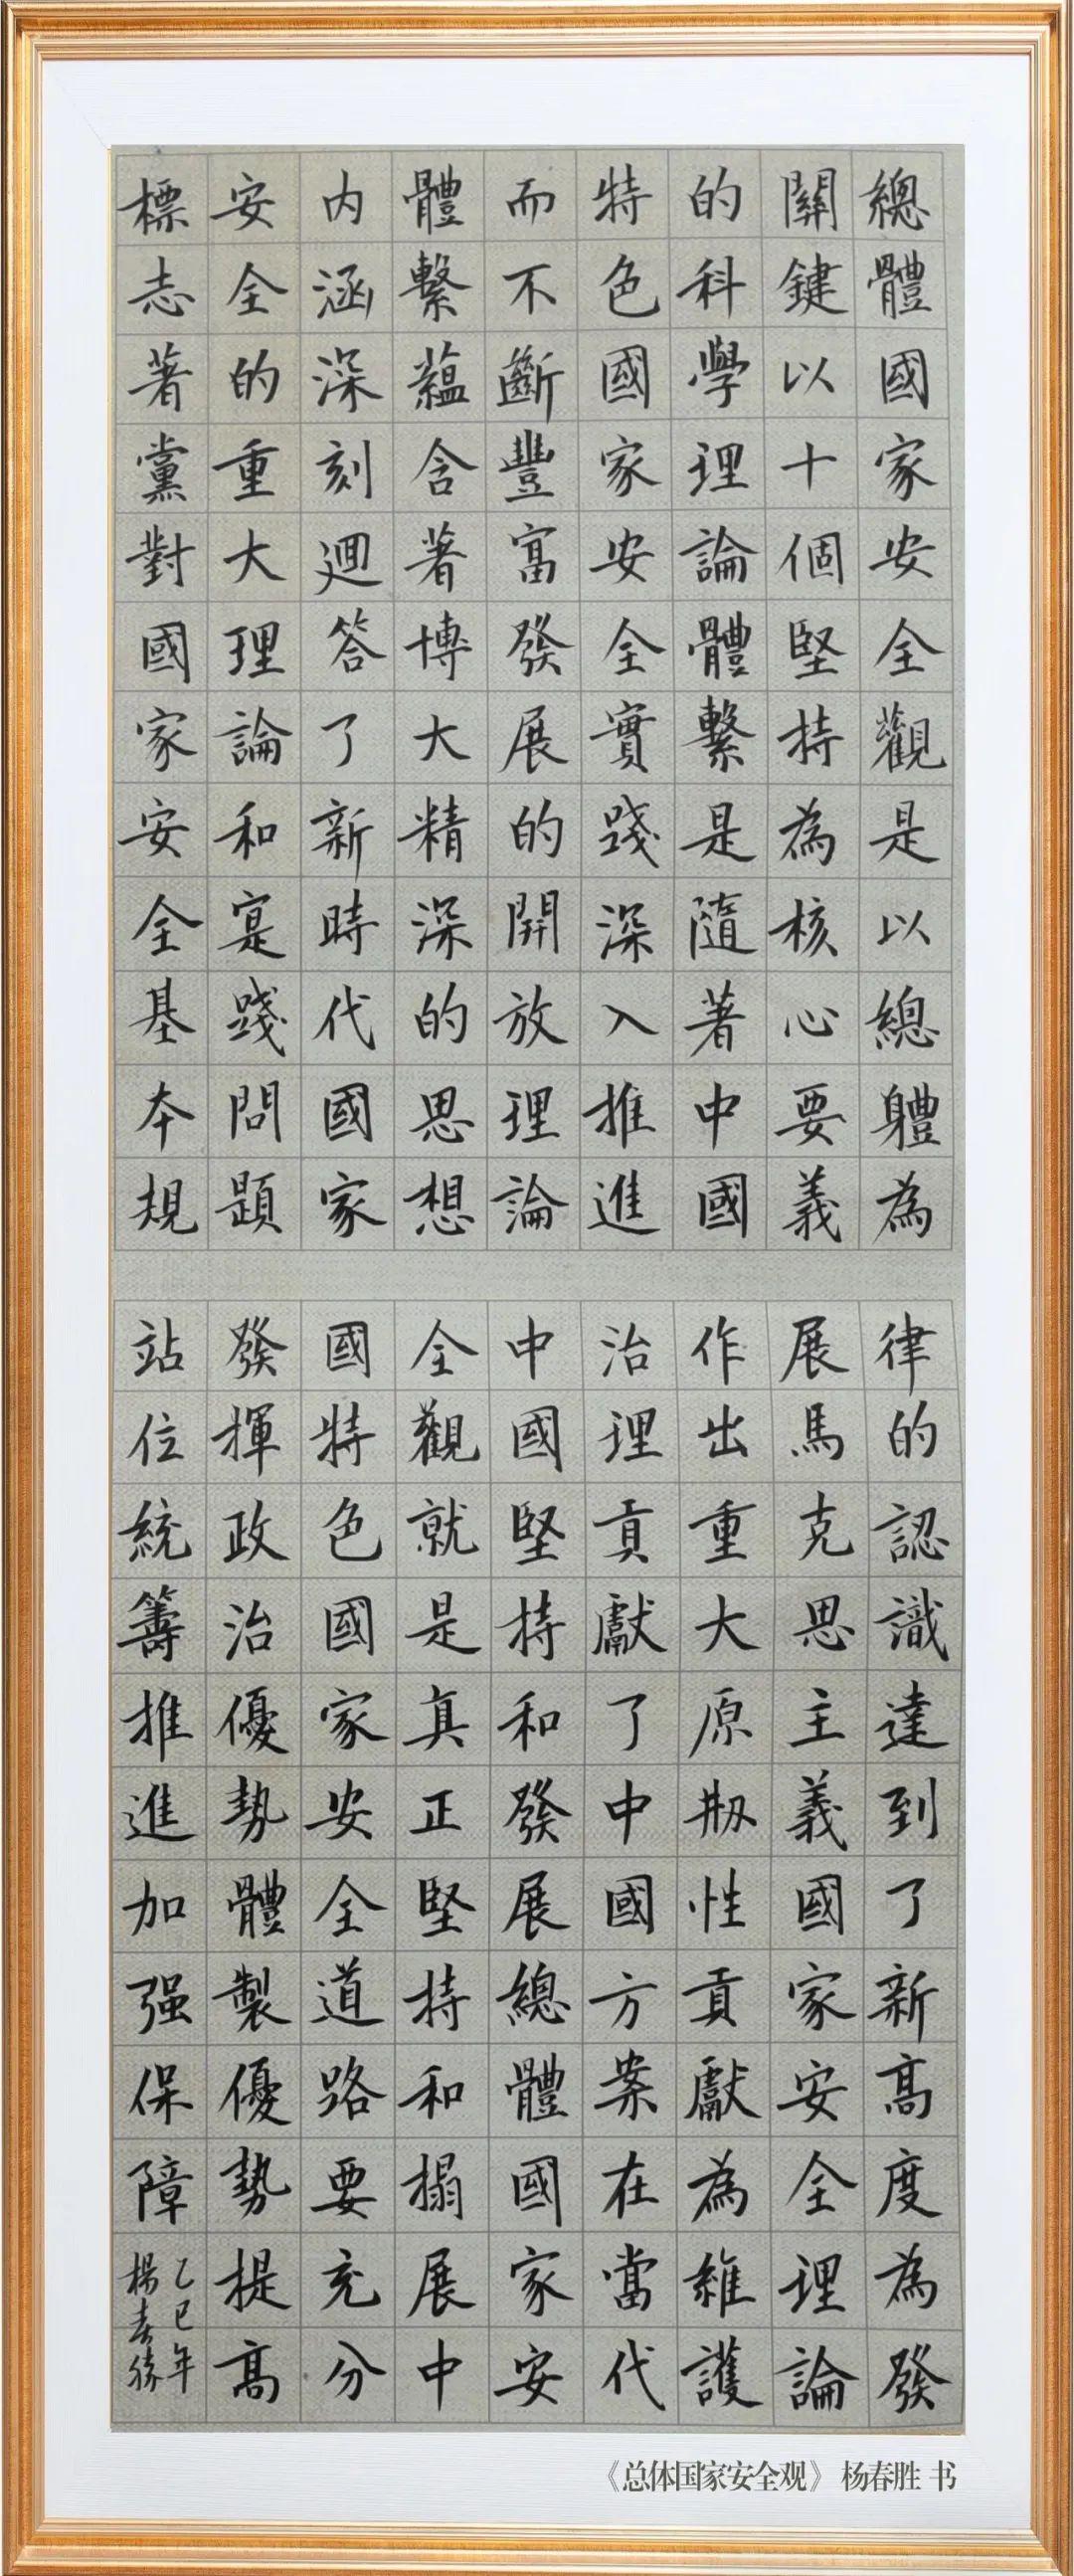 總體國家安全觀是以總軆為
關鍵以十個堅持為核心要義
的科學理論體繫是隨著中國
特色國家安全實踐深入推進
而不斷豐富發展的開放理論
體繫蘊含著博大精深的思想
内涵深刻迴答了新時代國家
安全的重大理論和寔踐問題
標志著黨對國家安全基本規
律的認識達到了新高度為發
展馬克思主義國家安全理論
作出重大原刱性貢獻為維護
治理貢獻了中國方案在當代
中國堅持和發展總體國家安
全觀就是真正堅持和搨展中
國特色國家安全道路要充分
發揮政治優勢體製優勢提高
站位統籌推進加强保障
乙巳年
楊春勝
《总体国家安全观》 杨春胜 书